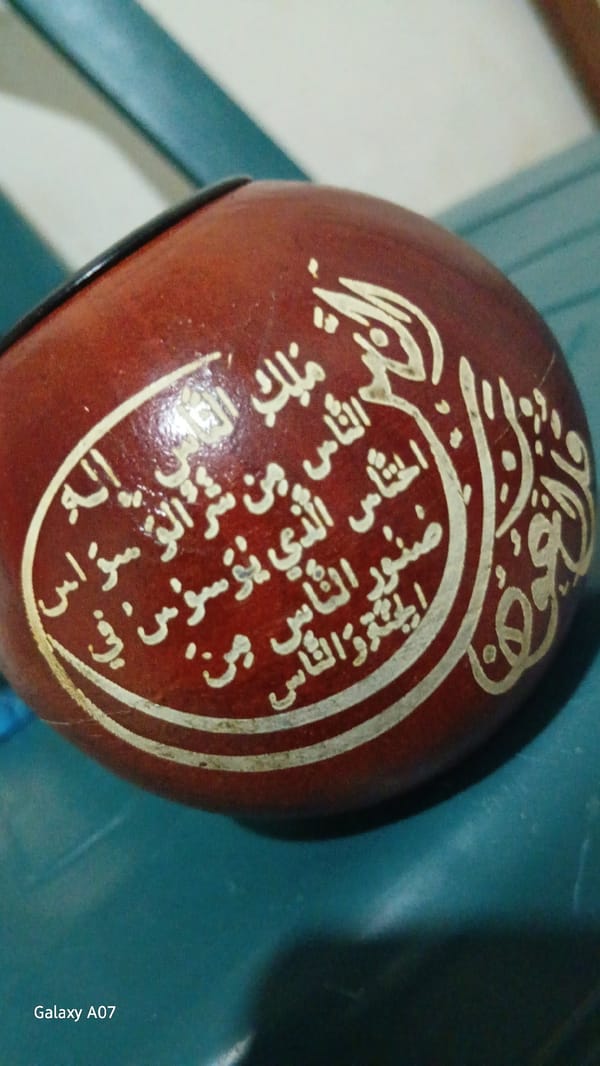 قل اعوذ
برب
الناس
ملك الناس إله
الناس من شر الوسواس
الخناس الذي يوسوس في
صدور الناس من
الجنة والناس
Galaxy A07